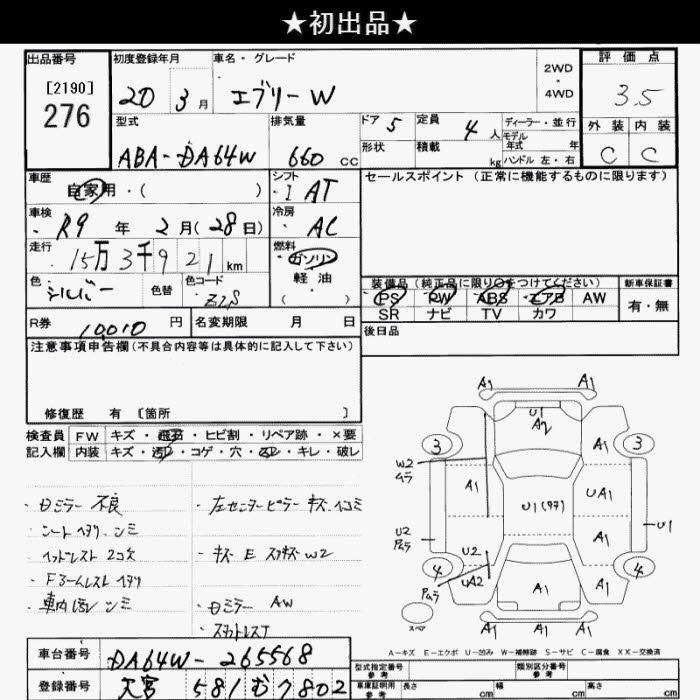 ★初出品★
出品番号 初度登録年月 車名・グレード 2WD・4WD 評価点
[2190]
276
20年 3月 エブリーW 3.5
型式 排気量 ドア 5 定員 4人 ディーラー・並行
モデル年式 年
外装 内装
ABA-DA64W 660cc 形状 積載 kg ハンドル 左・右
C C
車歴 自家用・( ) シフト I AT セールスポイント (正常に機能するものに限ります)
車検 R9年 2月(28日) 冷房 AC
走行 15万3千921km 燃料 ガソリン
軽油
( )
色 シルバー 色替 色コード Z2S
装備品 (純正品に限り○をつけてください) 新車保証書
PS PW ABS エアB AW 有・無
SR ナビ TV カワ
R券 10010円 名変期限 月 日 後日品
注意事項申告欄(不具合内容等は具体的に記入して下さい)
修復歴 有 [箇所 ]
検査員 FW キズ・飛石・ヒビ割・リペア跡・×要
記入欄 内装 キズ・汚レ・コゲ・穴・スレ・キレ・破レ
・日ミラー 不良
・シート ヘタリ、シミ
・ヘッドレスト 2コ欠
・左センターピラー キズ、ヘコミ
・キズ E W2
・日ミラー AW
A1 A1
U1
A2
3 3
W2
ムラ
A1 A1
UA1
U1(タタ)
U2
Pムラ
U2
UA2
A1
U1
4 4
Pムラ
A1 A1
スペア
A1 A1 A1
A-キズ E-エクボ U-凹み W-補修跡 S-サビ C-腐食 XX-交換済
車台番号 DA64W-265568
登録番号 大宮 581 む 7802
型式指定番号 参考 類別区分番号 参考
車庫証明用 参考 長さ cm 幅 cm 高さ cm